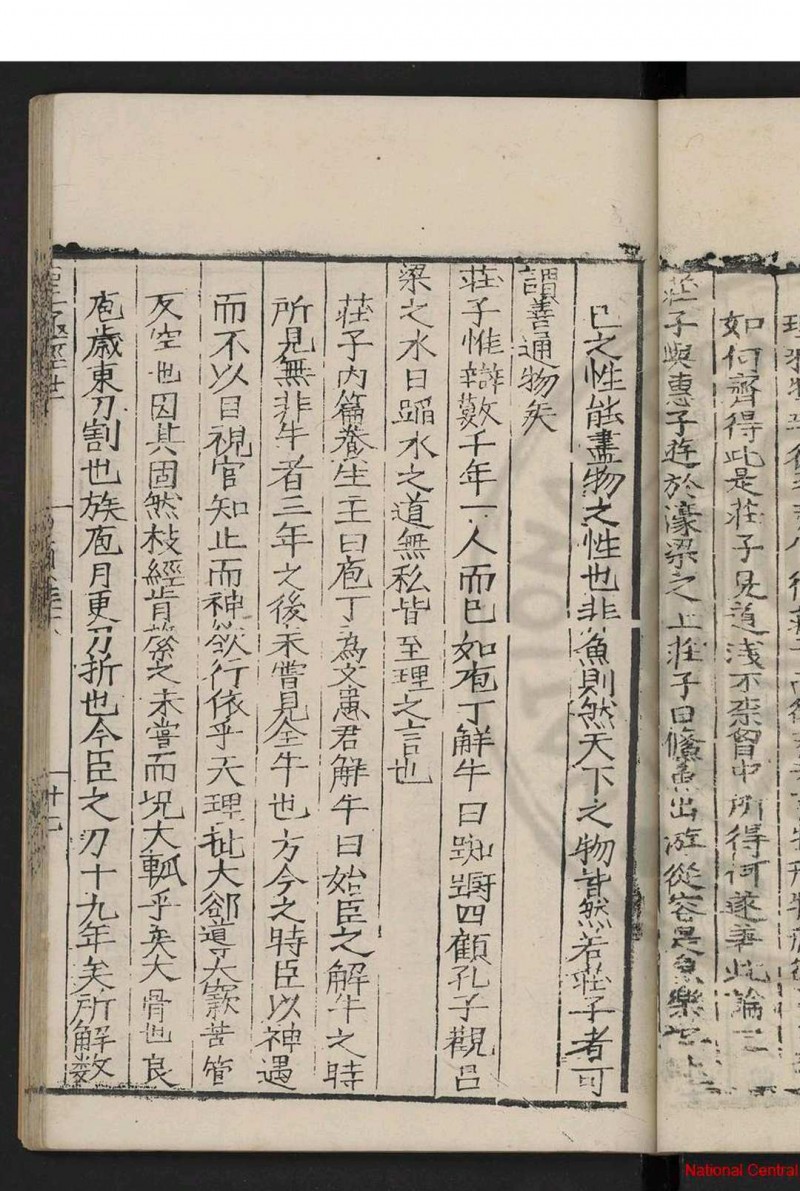 如何齊得此是莊子見道淺不柰胷中所得何遂著此論
莊子與惠子遊於濠梁之上莊子曰鯈魚出游從容是魚樂
己之性能盡物之性也非魚則然天下之物皆然若莊子者可
謂善通物矣
莊子惟辯數千年一人而已如庖丁解牛曰踟躕四顧孔子觀吕
梁之水曰蹈水之道無私皆至理之言也
莊子内篇養生主曰庖丁為文惠君解牛曰始臣之解牛之時
所見無非牛者三年之後未嘗見全牛也方今之時臣以神遇
而不以目視官知止而神欲行依乎天理批大郤導大窾苦管
反空也因其固然枝經肯綮之未嘗而况大軱乎矣大骨也良
庖歲更刀割也族庖月更刀折也今臣之刃十九年矣所解数
National Central